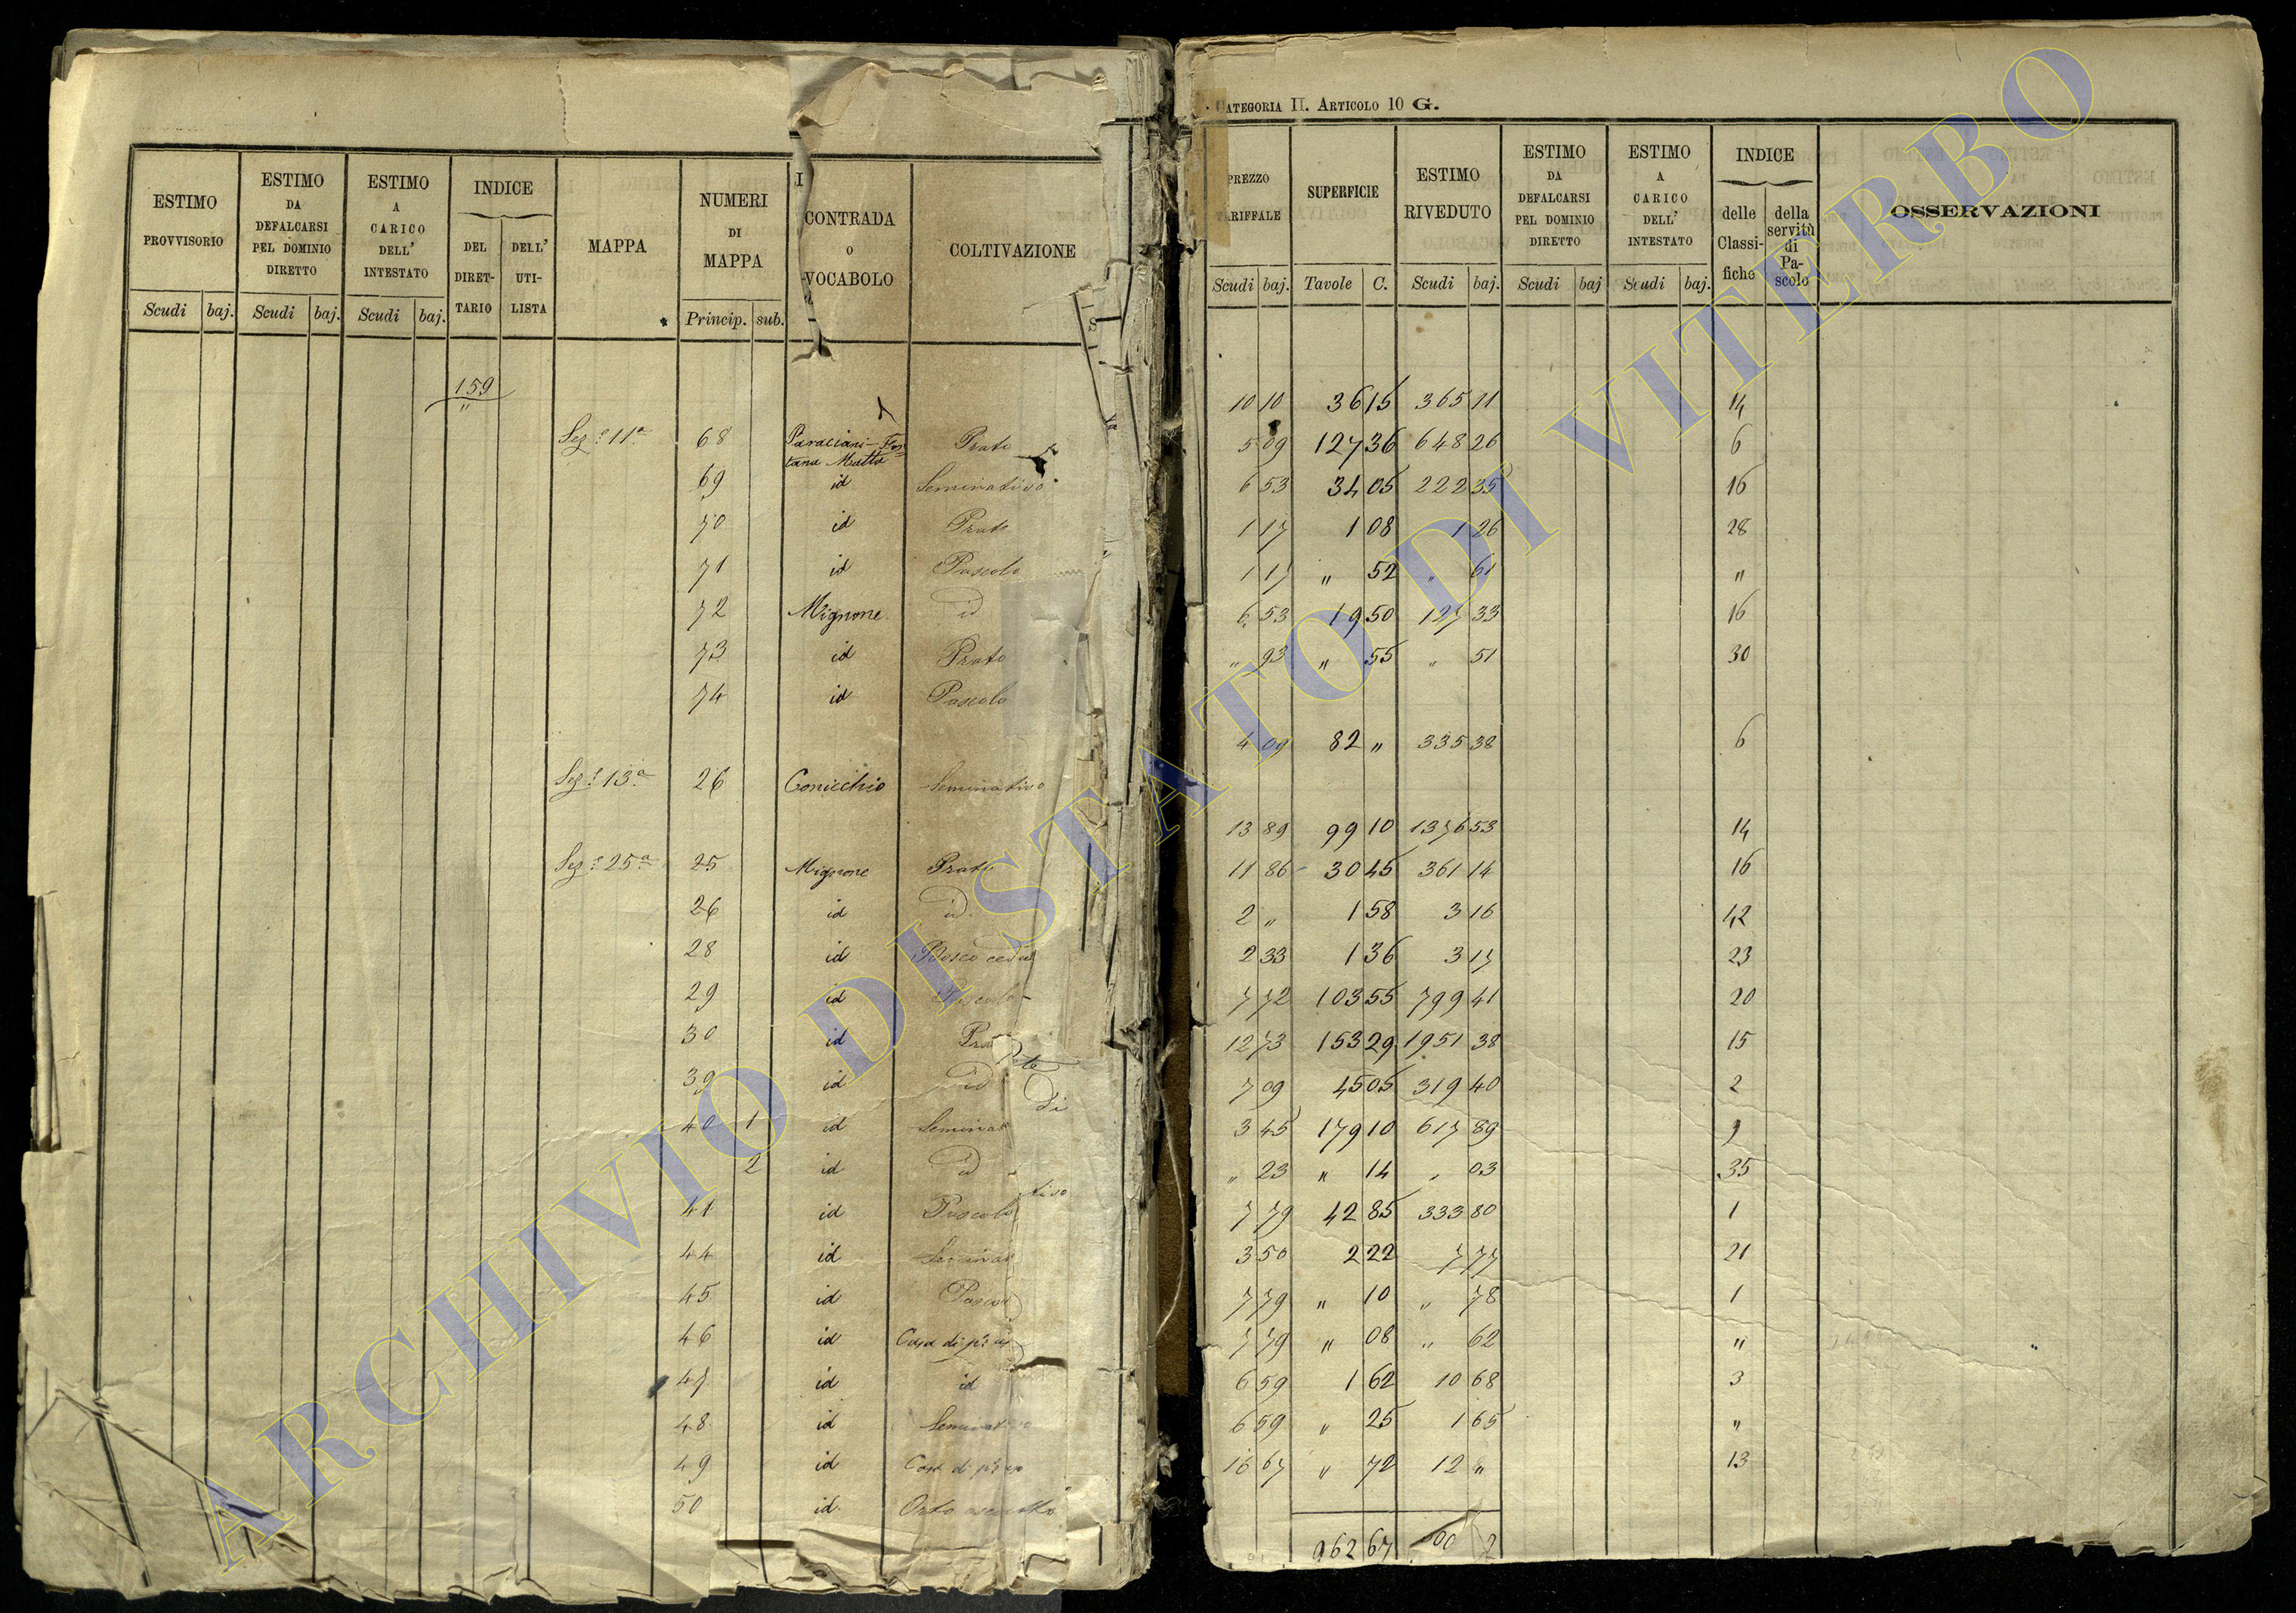 ESTIMO PROVVISORIO
ESTIMO DA DEFALCARSI PEL DOMINIO DIRETTO
ESTIMO A CARICO DELL' INTESTATO
INDICE
DEL DIRET-TARIO
DELL' UTI-LISTA
MAPPA
NUMERI DI MAPPA
CONTRADA o VOCABOLO
COLTIVAZIONE
Scudi baj. Scudi baj. Scudi baj. Princip. sub.
159
"
Sez.e 11a 68 Paraciani-Fon-tana Matta Prato
69 id Seminativo
70 id Prato
71 id Pascolo
72 Mignone id
73 id Prato
74 id Pascolo
Sez.e 13a 26 Conicchio Seminativo
Sez.e 25a 25 Mignone Prato
26 id id
28 id Bosco ceduo
29 id Pascolo
30 id Prato
39 id id
40 1 id Seminat
2 id id
41 id Pascolo
44 id Seminat
45 id Pascol
46 id Casa di
47 id id
48 id Seminativo
49 id Casa di
50 id Orto asciutto
CATEGORIA II. ARTICOLO 10 G.
PREZZO TARIFFALE
SUPERFICIE
ESTIMO RIVEDUTO
ESTIMO DA DEFALCARSI PEL DOMINIO DIRETTO
ESTIMO A CARICO DELL' INTESTATO
INDICE
delle Classi-fiche
della servitù di Pa-scolo
OSSERVAZIONI
Scudi baj. Tavole C. Scudi baj. Scudi baj Scudi baj.
10 10 36 15 365 11 14
5 09 127 36 648 26 6
6 53 34 05 222 35 16
1 17 1 08 1 26 28
1 17 " 52 " 61 "
6 53 19 50 127 33 16
" 93 " 55 " 51 30
4 09 82 " 335 38 6
13 89 99 10 1376 53 14
11 86 30 45 361 14 16
2 " 1 58 3 16 42
2 33 1 36 3 17 23
7 72 103 55 799 41 20
12 73 153 29 1951 38 15
7 09 45 05 319 40 2
3 45 179 10 617 89 9
" 23 " 14 " 03 35
7 79 42 85 333 80 1
3 50 2 22 7 77 21
7 79 " 10 " 78 1
7 79 " 08 " 62 "
6 59 1 62 10 68 3
6 59 " 25 1 65 "
16 67 " 72 12 " 13
962 67
ARCHIVIO DI STATO DI VITERBO